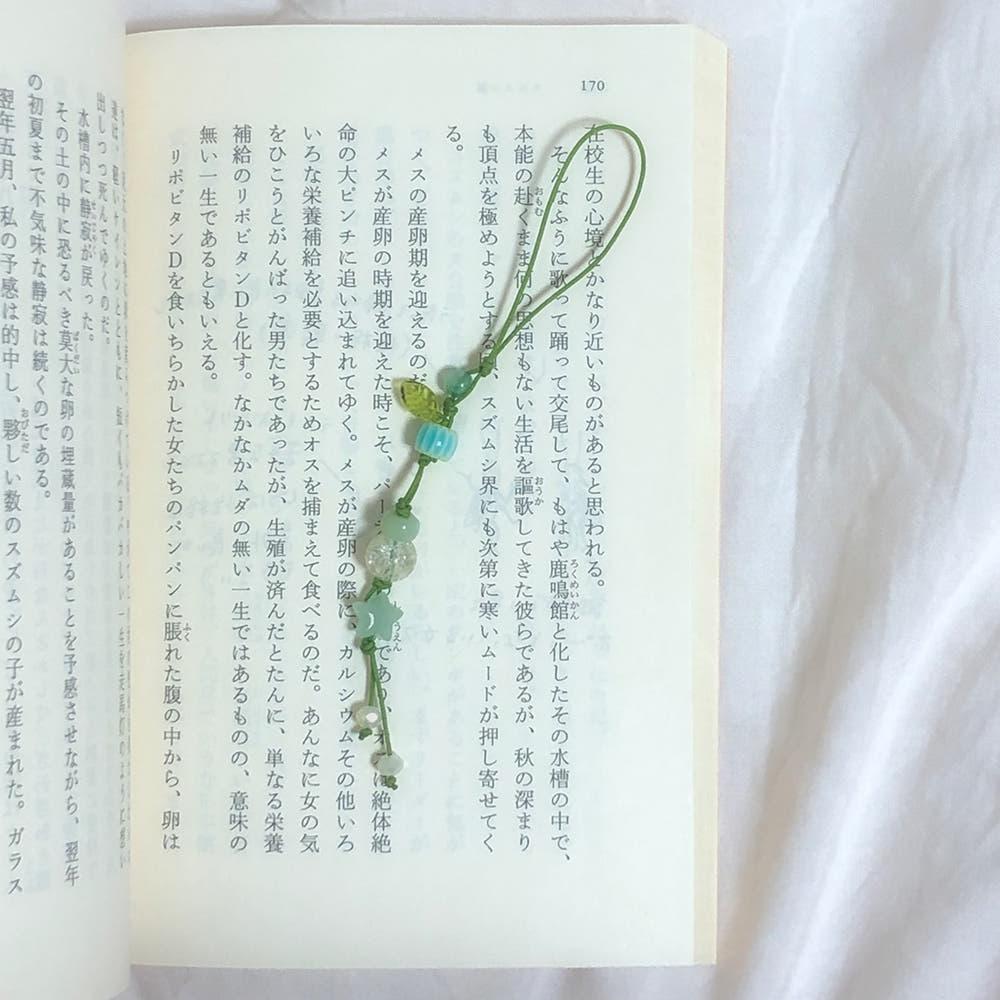 170
在校生の心境とかなり近いものがあると思われる。
そんなふうに歌って踊って交尾して、もはや鹿鳴館と化したその水槽の中で、
本能の赴くまま何の思想もない生活を謳歌してきた彼らであるが、秋の深まり
も頂点を極めようとする頃、スズムシ界にも次第に寒いムードが押し寄せてく
る。
メスの産卵期を迎えるのだ
メスが産卵の時期を迎えた時こそ、パー であり オスは絶体絶
命の大ピンチに追い込まれてゆく。メスが産卵の際に、カルシウムその他いろ
いろな栄養補給を必要とするためオスを捕まえて食べるのだ。あんなに女の気
をひこうとがんばった男たちであったが、生殖が済んだとたんに、単なる栄養
補給のリポビタンDと化す。なかなかムダの無い一生ではあるものの、意味の
無い一生であるともいえる。
リポビタンDを食いちらかした女たちのパンパンに脹れた腹の中から、卵は
出しつつ死んでゆくのだ。
水槽内に静寂が戻った。
その土の中に恐るべき莫大な卵の埋蔵量があることを予感させながら、翌年
の初夏まで不気味な静寂は続くのである。
翌年五月、私の予感は的中し、夥しい数のスズムシの子が産まれた。ガラス